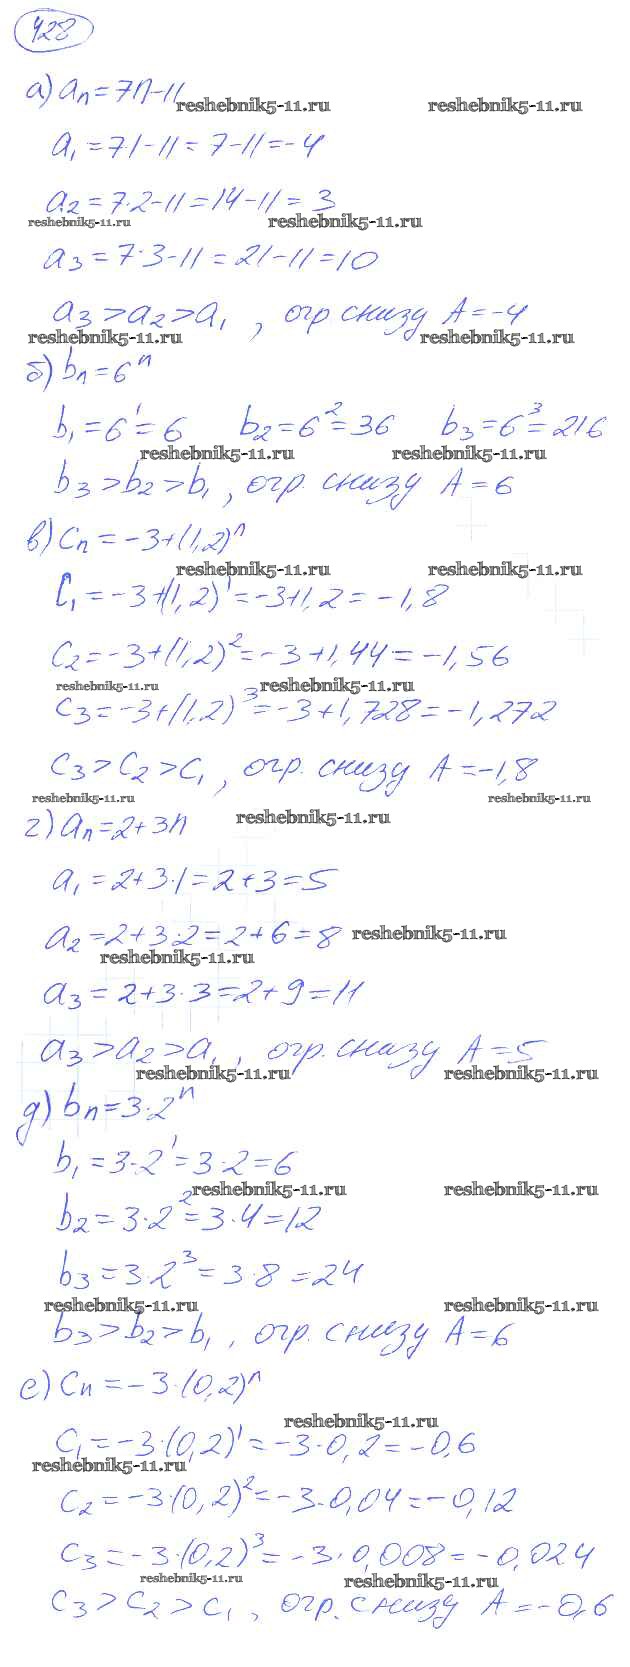 428
а) aₙ=7n-11
reshebnik5-11.ru reshebnik5-11.ru
a₁=7·1-11=7-11=-4
a₂=7·2-11=14-11=3
reshebnik5-11.ru reshebnik5-11.ru
a₃=7·3-11=21-11=10
a₃>a₂>a₁, огр снизу A=-4
reshebnik5-11.ru reshebnik5-11.ru
б) bₙ=6ⁿ
b₁=6¹=6 b₂=6²=36 b₃=6³=216
reshebnik5-11.ru reshebnik5-11.ru
b₃>b₂>b₁, огр. снизу A=6
в) cₙ=-3+(1,2)ⁿ
reshebnik5-11.ru reshebnik5-11.ru
c₁=-3+(1,2)¹=-3+1,2=-1,8
c₂=-3+(1,2)²=-3+1,44=-1,56
reshebnik5-11.ru reshebnik5-11.ru
c₃=-3+(1,2)³=-3+1,728=-1,272
c₃>c₂>c₁, огр. снизу A=-1,8
reshebnik5-11.ru reshebnik5-11.ru
г) aₙ=2+3n reshebnik5-11.ru
a₁=2+3·1=2+3=5
a₂=2+3·2=2+6=8 reshebnik5-11.ru
reshebnik5-11.ru
a₃=2+3·3=2+9=11
a₃>a₂>a₁, огр. снизу A=5
reshebnik5-11.ru reshebnik5-11.ru
д) bₙ=3·2ⁿ
b₁=3·2¹=3·2=6
reshebnik5-11.ru reshebnik5-11.ru
b₂=3·2²=3·4=12
b₃=3·2³=3·8=24
reshebnik5-11.ru reshebnik5-11.ru
b₃>b₂>b₁, огр. снизу A=6
е) cₙ=-3·(0,2)ⁿ
reshebnik5-11.ru
c₁=-3·(0,2)¹=-3·0,2=-0,6
reshebnik5-11.ru
c₂=-3·(0,2)²=-3·0,04=-0,12
c₃=-3·(0,2)³=-3·0,008=-0,024
reshebnik5-11.ru reshebnik5-11.ru
c₃>c₂>c₁, огр. снизу A=-0,6